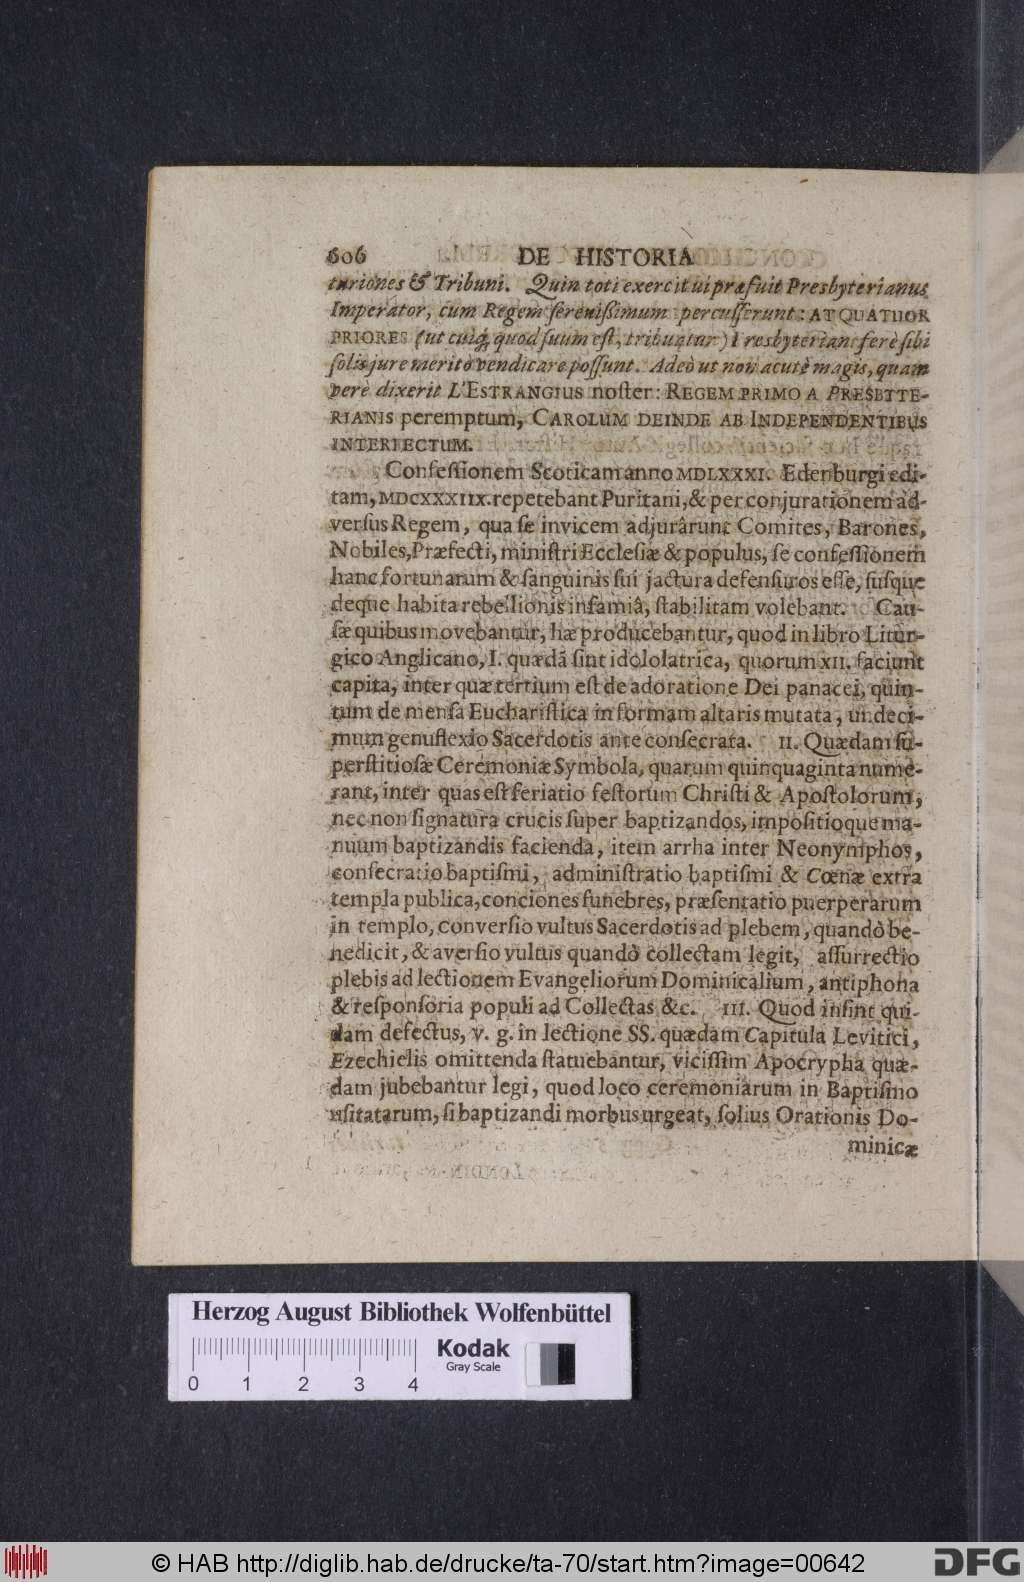 606 DE HISTORIA
turiones & Tribuni. Quin toti exercitui præfuit Presbyterianus
Imperator, cum Regem sereniſsimum perculſerunt: AT QUATUOR
PRIORES (ut cuiq́; quod ſuum eſt, tribuatur) Presbyteriani ferè ſibi
ſolis jure meritò vendicare poſſunt. Adeò ut non acutè magis, quam
verè dixerit L'ESTRANGIUS noſter: REGEM PRIMO A PRESBYTE-
RIANIS peremptum, CAROLUM DEINDE AB INDEPENDENTIBUS
INTERFECTUM.
Confeſſionem Scoticam anno MDLXXXI. Edenburgi edi-
tam, MDCXXXIIX. repetebant Puritani, & per conjurationem ad-
verſus Regem, qua ſe invicem adjurârunt Comites, Barones,
Nobiles, Præfecti, miniſtri Eccleſiæ & populus, ſe confeſſionem
hanc fortunarum & ſanguinis ſui jactura defenſuros eſſe, ſuſque
deque habita rebellionis infamiâ, ſtabilitam volebant. Cau-
ſæ quibus movebantur, hæ producebantur, quod in libro Litur-
gico Anglicano, I. quædã ſint idololatrica, quorum XII. faciunt
capita, inter quæ tertium eſt de adoratione Dei panacei, quin-
tum de menſa Euchariſtica in formam altaris mutata, undeci-
mum genuflexio Sacerdotis ante conſecrata. II. Quædam ſu-
perſtitioſæ Ceremoniæ Symbola, quarum quinquaginta nume-
rant, inter quas eſt feriatio feſtorum Chriſti & Apoſtolorum,
nec non ſignatura crucis ſuper baptizandos, impoſitioque ma-
nuum baptizandis facienda, item arrha inter Neonymphos,
conſecratio baptiſmi, adminiſtratio baptiſmi & Cœnæ extra
templa publica, conciones funebres, præſentatio puerperarum
in templo, converſio vultus Sacerdotis ad plebem, quandò be-
nedicit, & averſio vultus quandò collectam legit, aſſurrectio
plebis ad lectionem Evangeliorum Dominicalium, antiphona
& reſponſoria populi ad Collectas &c. III. Quod inſint qui-
dam defectus, v. g. in lectione SS. quædam Capitula Levitici,
Ezechielis omittenda ſtatuebantur, viciſſim Apocrypha quæ-
dam jubebantur legi, quod loco ceremoniarum in Baptiſmo
uſitatarum, ſi baptizandi morbus urgeat, ſolius Orationis Do-
minicæ
Herzog August Bibliothek Wolfenbüttel
Kodak
Gray Scale
0 1 2 3 4
© HAB http://diglib.hab.de/drucke/ta-70/start.htm?image=00642
DFG